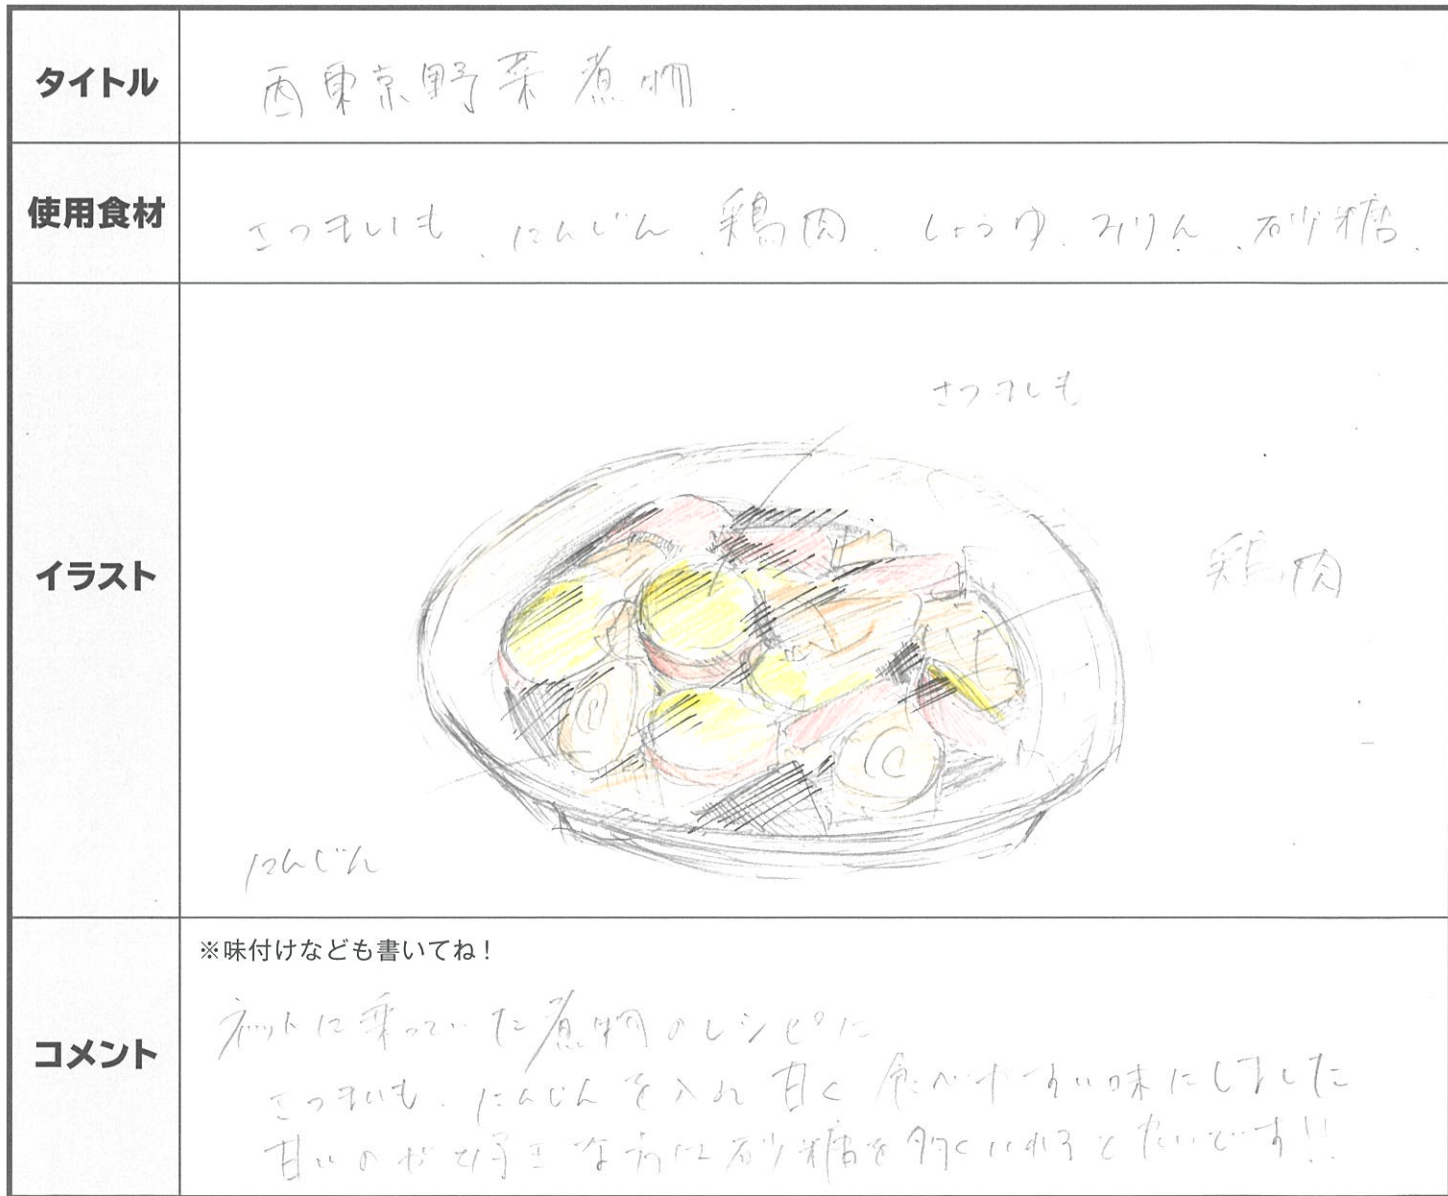 タイトル
西東京野菜煮物.
使用食材
さつまいも、にんじん、鶏肉、しょうゆ、みりん、砂糖.
イラスト
さつまいも
鶏肉
にんじん
コメント
※味付けなども書いてね！
ネットに乗っていた煮物のレシピに
さつまいも、にんじんを入れ甘く食べやすい味にしました
甘いのが好きな方は砂糖を多くいれると です!!